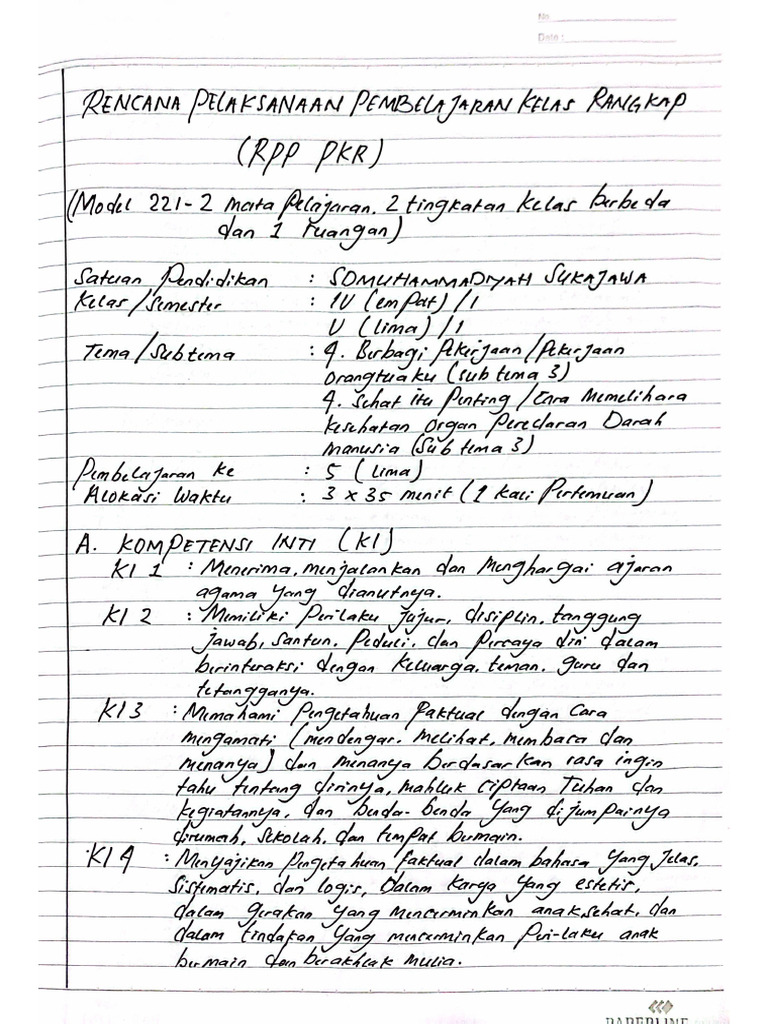 No
Date :
RENCANA PELAKSANAAN PEMBELAJARAN KELAS RANGKAP
(RPP PKR)
(Model 221-2 mata Pelajaran. 2 tingkatan kelas berbeda
dan 1 ruangan)
Satuan Pendidikan : SDMUHAMMADIYAH SUKAJAWA
Kelas/Semester : IV (empat) /1
V (lima) /1
Tema/Subtema : 4. Berbagi Pekerjaan/Pekerjaan
orangtuaku (sub tema 3)
4. Sehat itu Penting/Cara Memelihara
kesehatan organ Peredaran Darah
manusia (Sub tema 3)
Pembelajaran ke : 5 (lima)
Alokasi Waktu : 3 x 35 menit (1 kali Pertemuan)
A. KOMPETENSI INTI (KI)
KI 1 : Menerima, menjalankan dan Menghargai ajaran
agama yang dianutnya.
KI 2 : Memiliki Perilaku jujur, disiplin, tanggung
jawab, santun, Peduli, dan Percaya diri dalam
berinteraksi dengan keluarga, teman, guru dan
tetangganya.
KI 3 : Memahami Pengetahuan faktual dengan cara
mengamati (mendengar, melihat, membaca dan
menanya) dan menanya berdasarkan rasa ingin
tahu tentang dirinya, mahluk ciptaan Tuhan dan
kegiatannya, dan benda-benda yang dijumpainya
dirumah, sekolah, dan tempat bermain.
KI 4 : Menyajikan Pengetahuan faktual dalam bahasa yang jelas,
sistematis, dan logis, dalam karya yang estetis,
dalam gerakan yang mencerminkan anak sehat, dan
dalam tindakan yang mencerminkan Peri-laku anak
bermain dan berakhlak mulia.
PAPERLINE